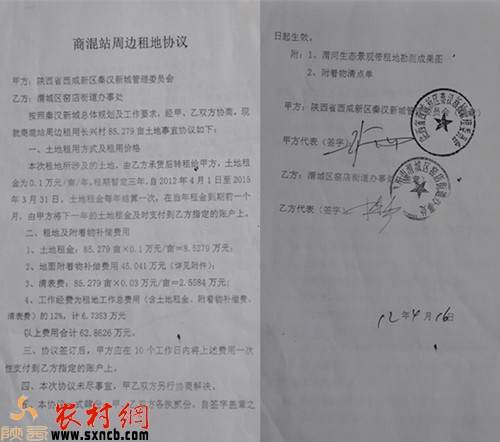 商混站周边租地协议
甲方：陕西省西咸新区秦汉新城管理委员会
乙方：渭城区窑店街道办事处
按照秦汉新城总体规划及工作要求，经甲、乙双方协商，现
就商混站果边租用长兴村85.279亩土地事宜协议如下：
一、土地租用方式及租用价格
本次租地所涉及的土地，由乙方承责后转租给甲方，土地租
金为0.1万元/亩/年，租期暂定三年，自2012年4月1日至2015
年3月31日，土地租金每年结算一次，在当年租金到期前一个
月，由甲方将下一年的土地租金及时支付到乙方指定的账户上。
二、租地及附着物补偿费用
1、土地租金：85.279亩×0.1万元/亩=8.5279万元；
2、地面附着物补偿费用45.041万元（详见附件）；
3、清表费：85.279亩×0.03万元/亩=2.5584万元；
4、工作经费为租地工作总费用（含土地租金、附着物补偿费、
清表费）的12%，计6.7353万元
以上费用合计62.8626万元。
三、协议签订后，甲方应在10个工作日内将上述费用一次
性支付到乙方指定的账户上。
四、本次协议未尽事宜，甲乙双方另行协商解决。
五、本协议一式肆份，甲乙双方各执贰份，自签字盖章之
日起生效。
附：1、渭河生态景观带租地勘测成果图
2、附着物清点单
甲方：陕西省西咸新区秦汉新城管
甲方代表（签字）
乙方：渭城区窑店街道办事
乙方代表（签字）
12年4月16日
陕西
农村網
www.sxncb.com